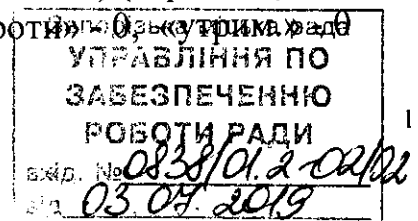 роти» - 0, «утрим.» - 0
рада
УПРАВЛІННЯ ПО
ЗАБЕЗПЕЧЕННЮ
РОБОТИ РАДИ
вхід. № 0838/01.2-02/02
від 03.07.2019